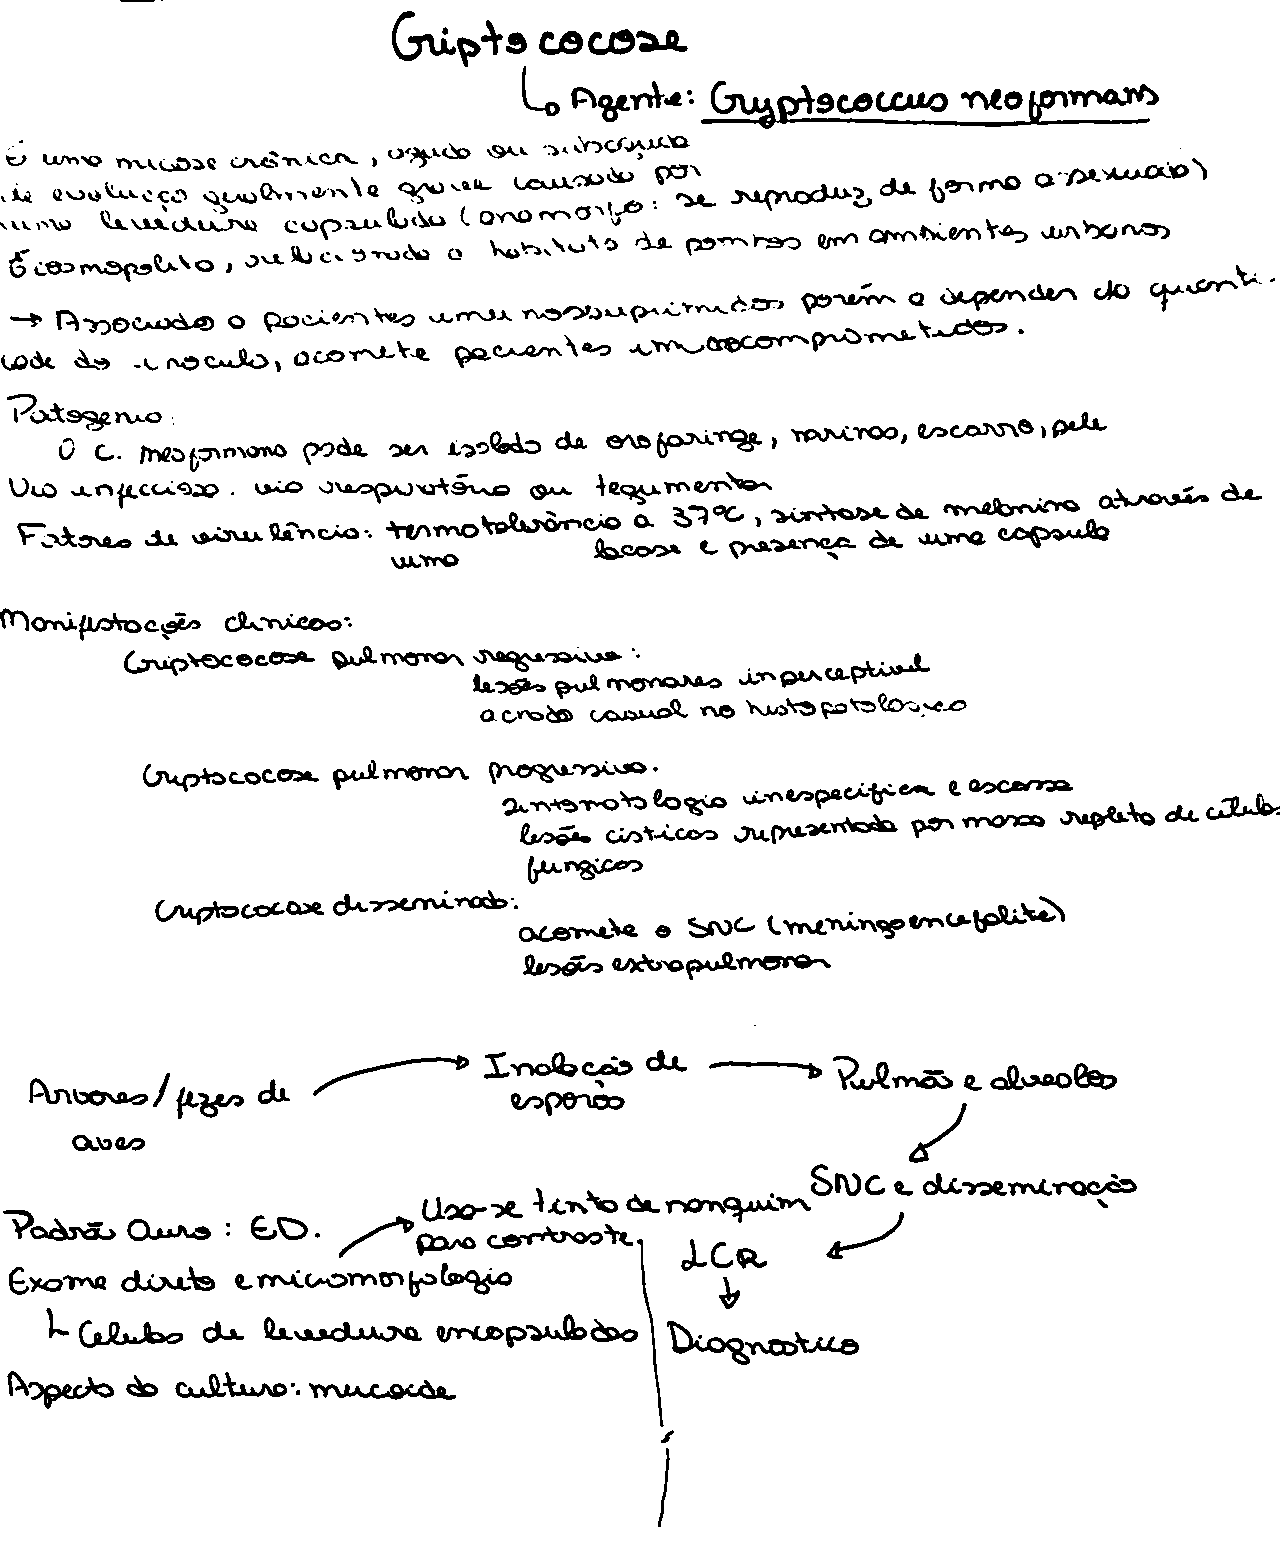 Criptococose
↳ Agente: Cryptococcus neoformans
É uma micose crônica, aguda ou subaguda
de evolução geralmente grave causada por
uma levedura capsulada (anamorfo: se reproduz de forma assexuada)
É cosmopolita, relacionada a habitats de pombos em ambientes urbanos
→ Associado a pacientes imunossuprimidos porém a depender da quanti-
dade do inoculo, acomete pacientes imunocomprometidos.
Patogenia:
O C. neoformans pode ser isolado de orofaringe, narinas, escarro, pele
Via infecciosa: via respiratória ou tegumentar
Fatores de virulência: termotolerância a 37°C, síntase de melanina através de
uma lacase e presença de uma capsula
Manifestações clinicas:
Criptococose pulmonar regressiva:
lesões pulmonares inperceptivel
acrado casual no histopatologico
Criptococose pulmonar progressiva:
sintomatologia inespecifica e escassa
lesões cisticas representada por massa repleta de célula
fungicas
Criptococose disseminada:
acomete o SNC (meningoencefalite)
lesões extrapulmonar
Arvores/fezes de
aves
→ Inalação de
esporos
→ Pulmão e alveolos
SNC e disseminação
LCR
↓
Diagnostico
Padrão Ouro: ED.
Usa-se tinta de nanquim
para contraste.
Exame direto e micromorfologia
↳ Celulas de levedura encapsuladas
Aspecto da cultura: mucoide